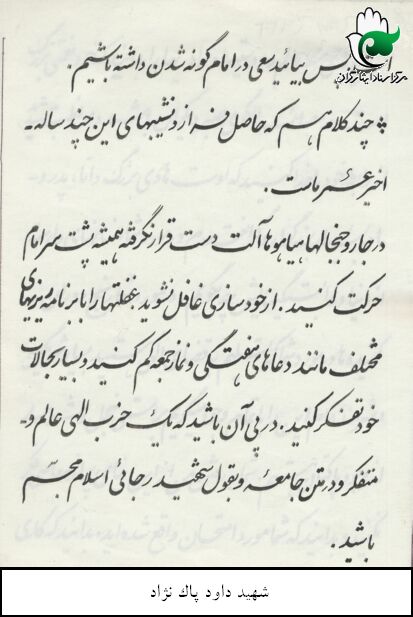 پس بیائید سعی در امام گونه شدن داشته باشیم.
مرکز اسناد ایثارگران
* چند کلام هم که حاصل فراز و نشیبهای این چند ساله -
اخیر عمر ماست.
در جار و جنجالها و هیاهوها آلت دست قرار نگرفته همیشه پشت سر امام
حرکت کنید. از خودسازی غافل نشوید غفلتها را با برنامه ریزیهای
مختلف مانند دعاهای هفتگی و نماز جمعه کم کنید و بسیار بحالات
خود تفکر کنید. در پی آن باشید که یک حزب الهی عالم و -
متفکر و در متن جامعه و بقول شهید رجائی اسلام مجسّم
باشید.
شهید داود پاک نژاد